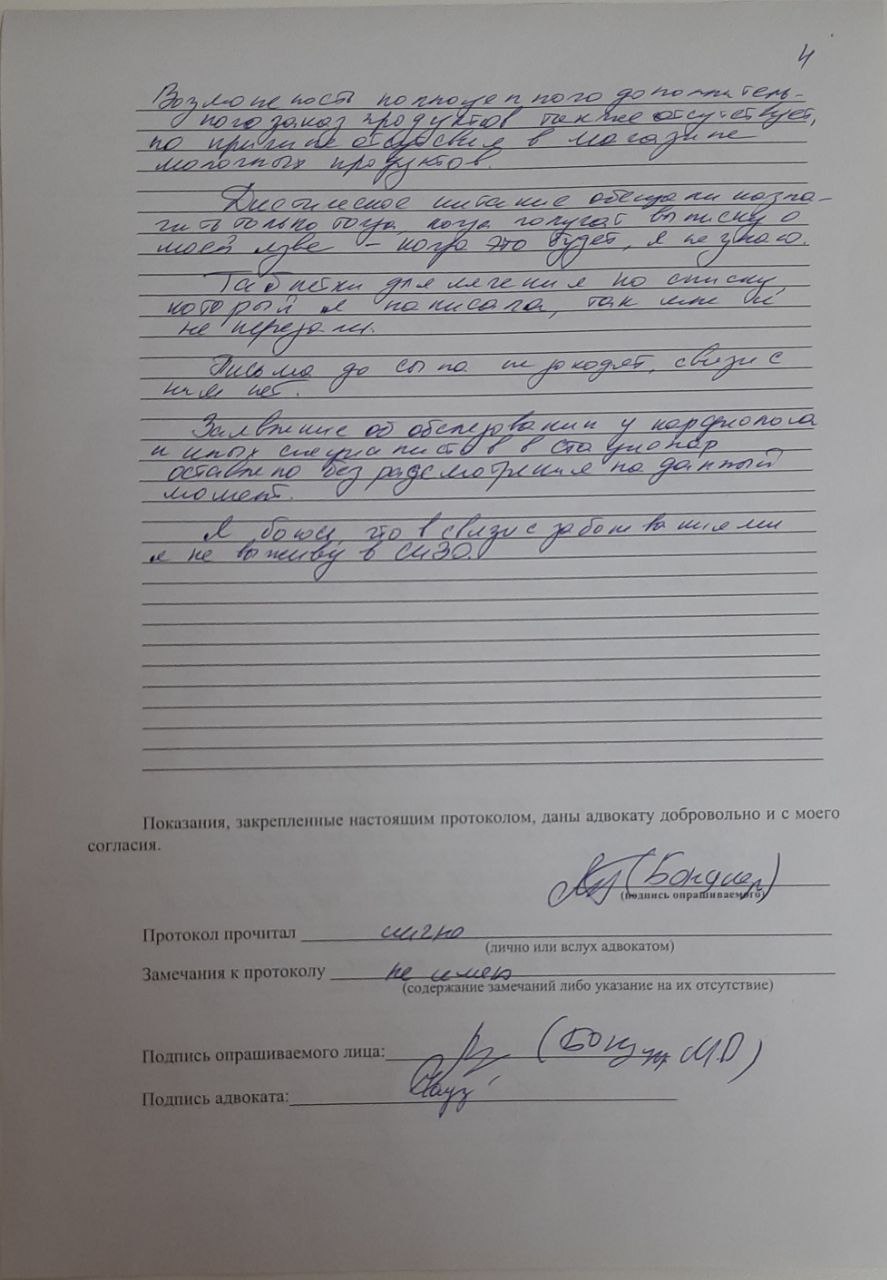 4
Возможность полноценного дополнитель-
ного заказ продуктов также отсутствует,
по причине отсутствия в магазине
молочных продуктов.
Диетическое питание обещали назна-
чить только тогда, когда получат выписку о
моей язве – когда это будет, я не знаю.
Таблетки для лечения по списку,
который я написала, так мне и
не передали.
Письма до сына не доходят, связи с
ним нет.
Заявление об обследовании у кардиолога
и иных специалистов в стационар
оставлено без рассмотрения на данный
момент.
Я боюсь, что в связи с заболеваниями
я не выживу в СИЗО.
Показания, закрепленные настоящим протоколом, даны адвокату добровольно и с моего
согласия.
(подпись опрашиваемого)
Протокол прочитал лично
(лично или вслух адвокатом)
Замечания к протоколу не имею
(содержание замечаний либо указание на их отсутствие)
Подпись опрашиваемого лица:
Подпись адвоката: